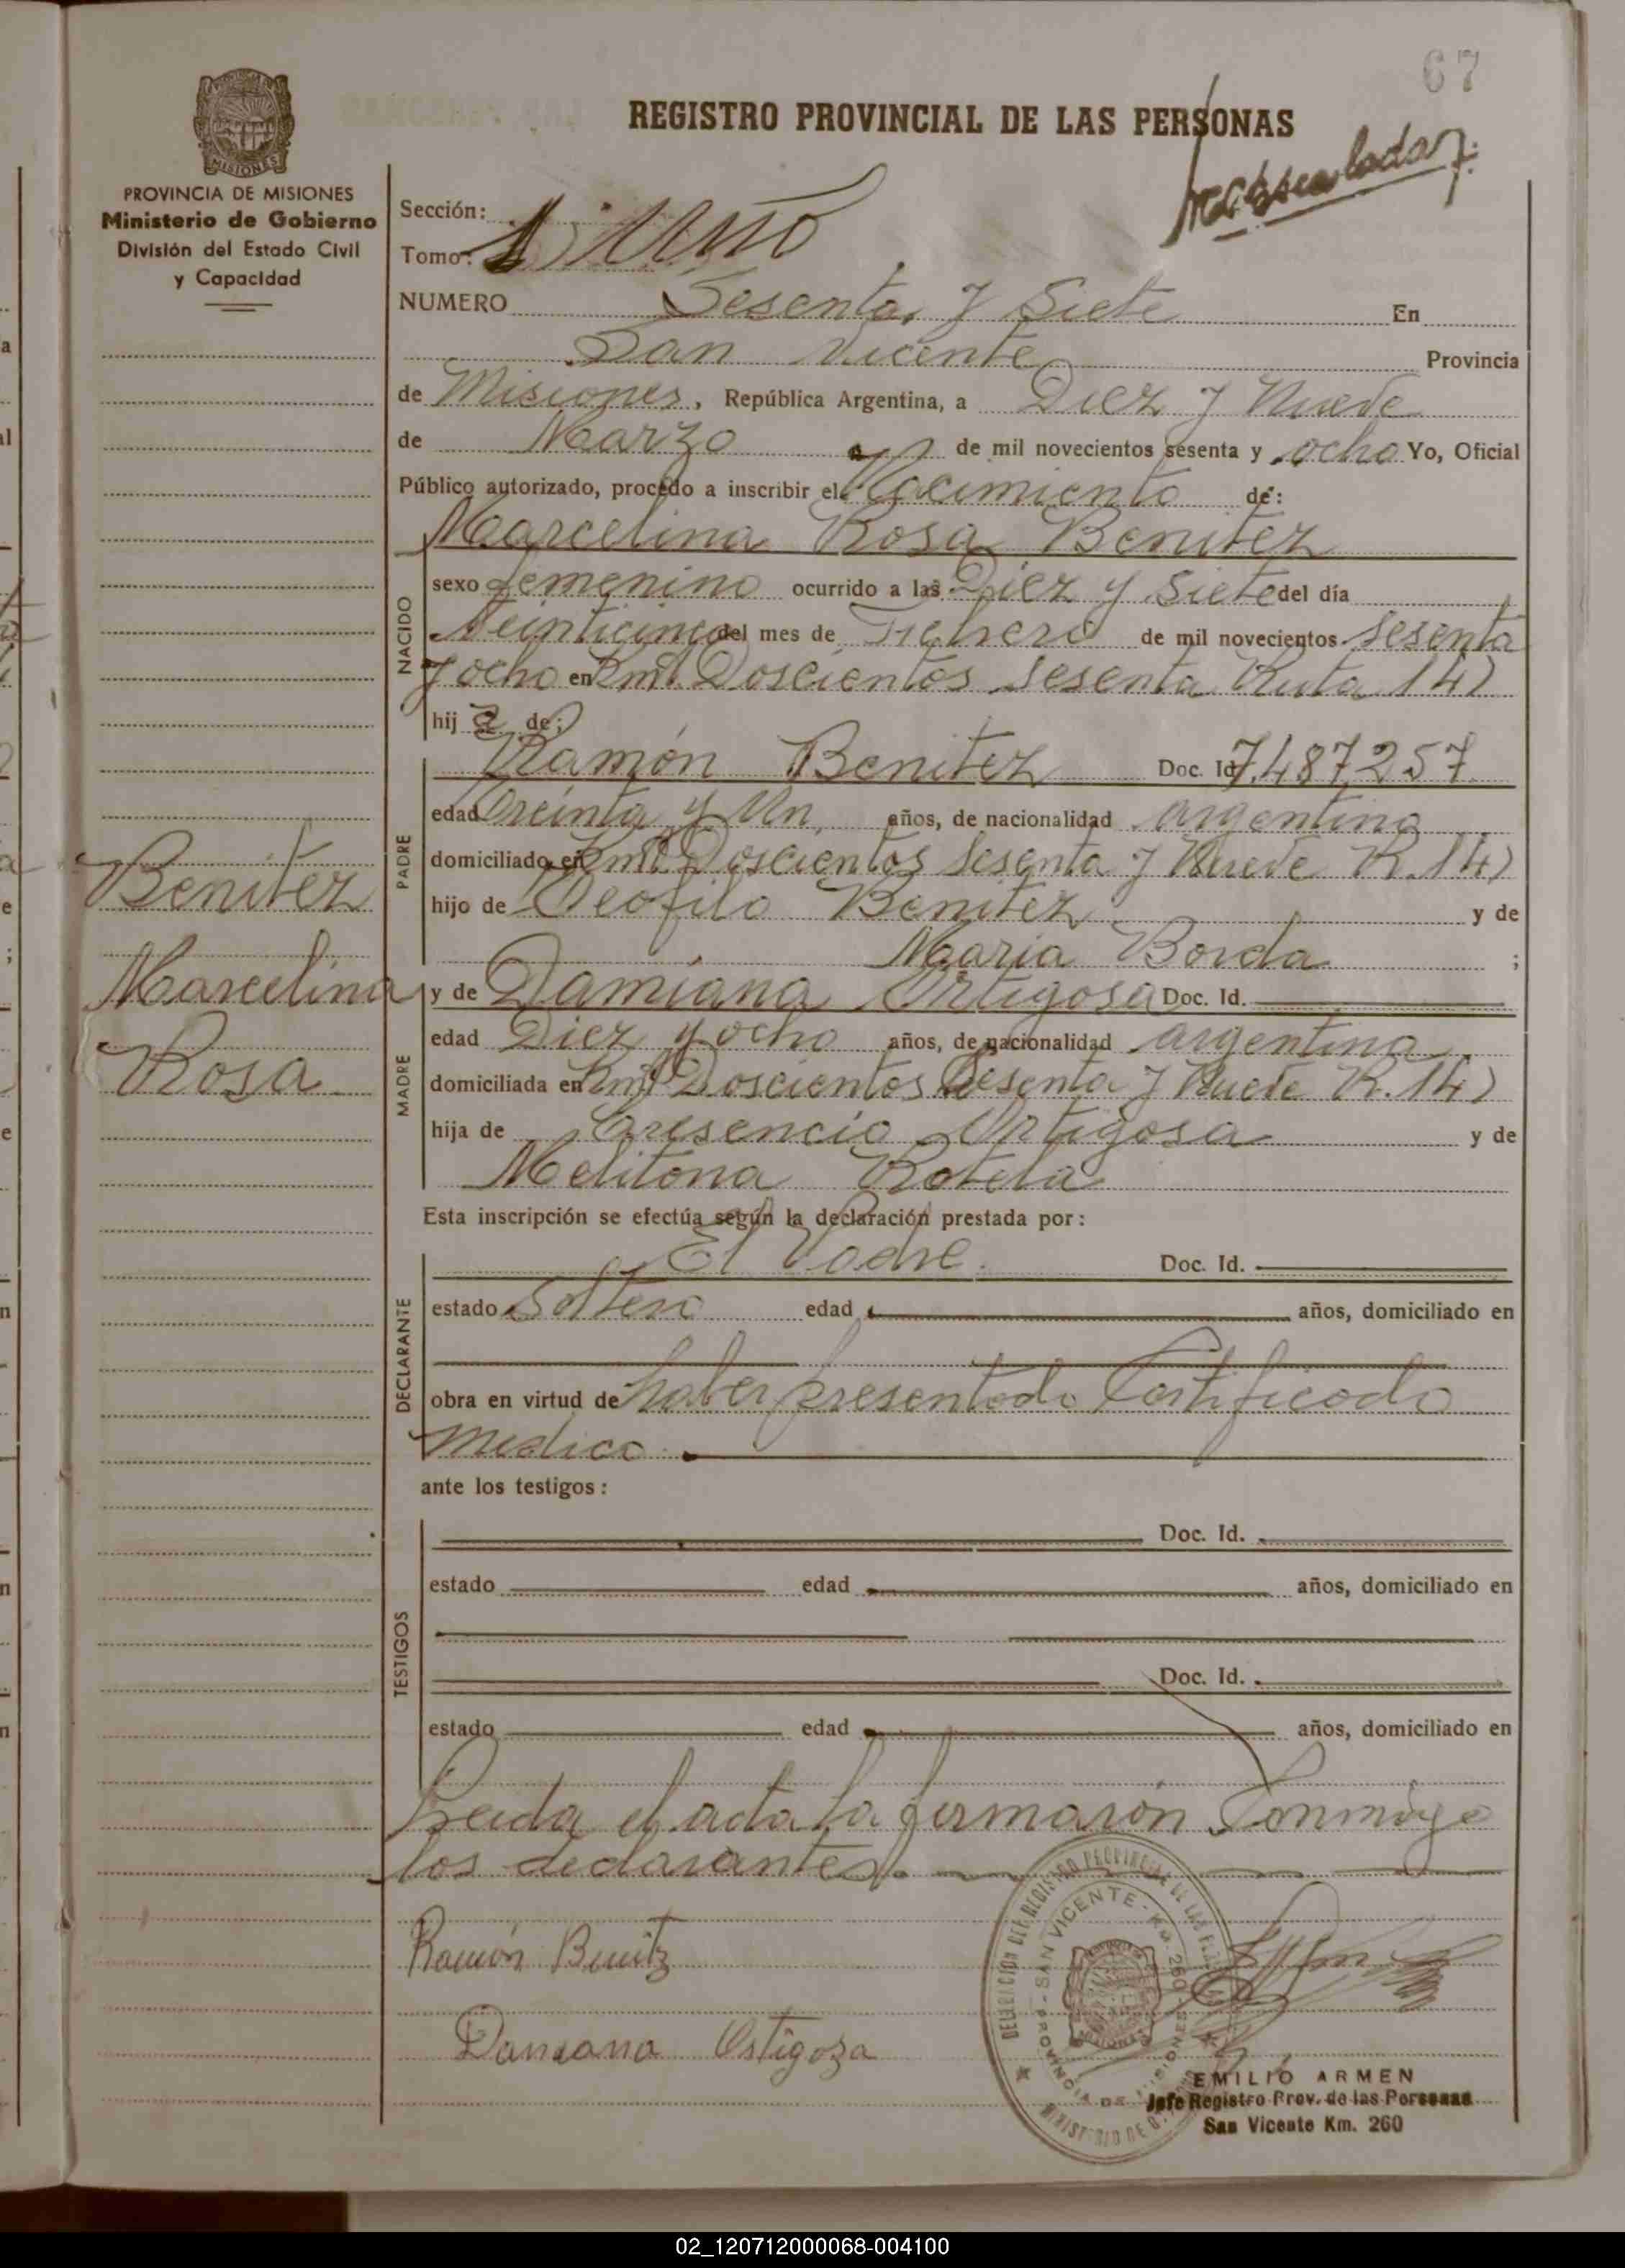 67
REGISTRO PROVINCIAL DE LAS PERSONAS
MISIONES
PROVINCIA DE MISIONES
Ministerio de Gobierno
División del Estado Civil
y Capacidad
Sección:
Tomo: 1) Uno
NUMERO Sesenta y Siete En
San Vicente Provincia
de Misiones, República Argentina, a Diez y Nueve
de Marzo de mil novecientos sesenta y ocho Yo, Oficial
Público autorizado, procedo a inscribir el Nacimiento de:
Marcelina Rosa Benitez
NACIDO
sexo femenino ocurrido a las Diez y Siete del día
Veinticinco del mes de Febrero de mil novecientos Sesenta
y ocho en Km. Doscientos Sesenta Ruta 14)
hij a de;
Ramón Benitez Doc. Id. 7.487.257
PADRE
edad Treinta y Un, años, de nacionalidad argentina
domiciliado en Km. Doscientos Sesenta y Nueve R. 14)
hijo de Teofilo Benitez y de
Maria Borda ;
Benitez
Marcelina
Rosa
y de Damiana Ortigosa Doc. Id.
MADRE
edad Diez y ocho años, de nacionalidad argentina
domiciliada en Km. Doscientos Sesenta y Nueve R. 14)
hija de Cresencio Ortigosa y de
Melitona Rotela
Esta inscripción se efectúa según la declaración prestada por:
El Padre. Doc. Id.
DECLARANTE
estado Soltero edad años, domiciliado en
obra en virtud de haber presentado Certificado
Medico.
ante los testigos:
Doc. Id.
TESTIGOS
estado edad años, domiciliado en
Doc. Id.
estado edad años, domiciliado en
Leida el acta la firmarón Conmigo
los declarantes.
Ramón Benitz
Damiana Ortigoza
SAN VICENTE - Km. 260
PROVINCIA DE MISIONES
EMILIO ARMEN
Jefe Registro Prov. de las Personas
San Vicente Km. 260
02_120712000068-004100